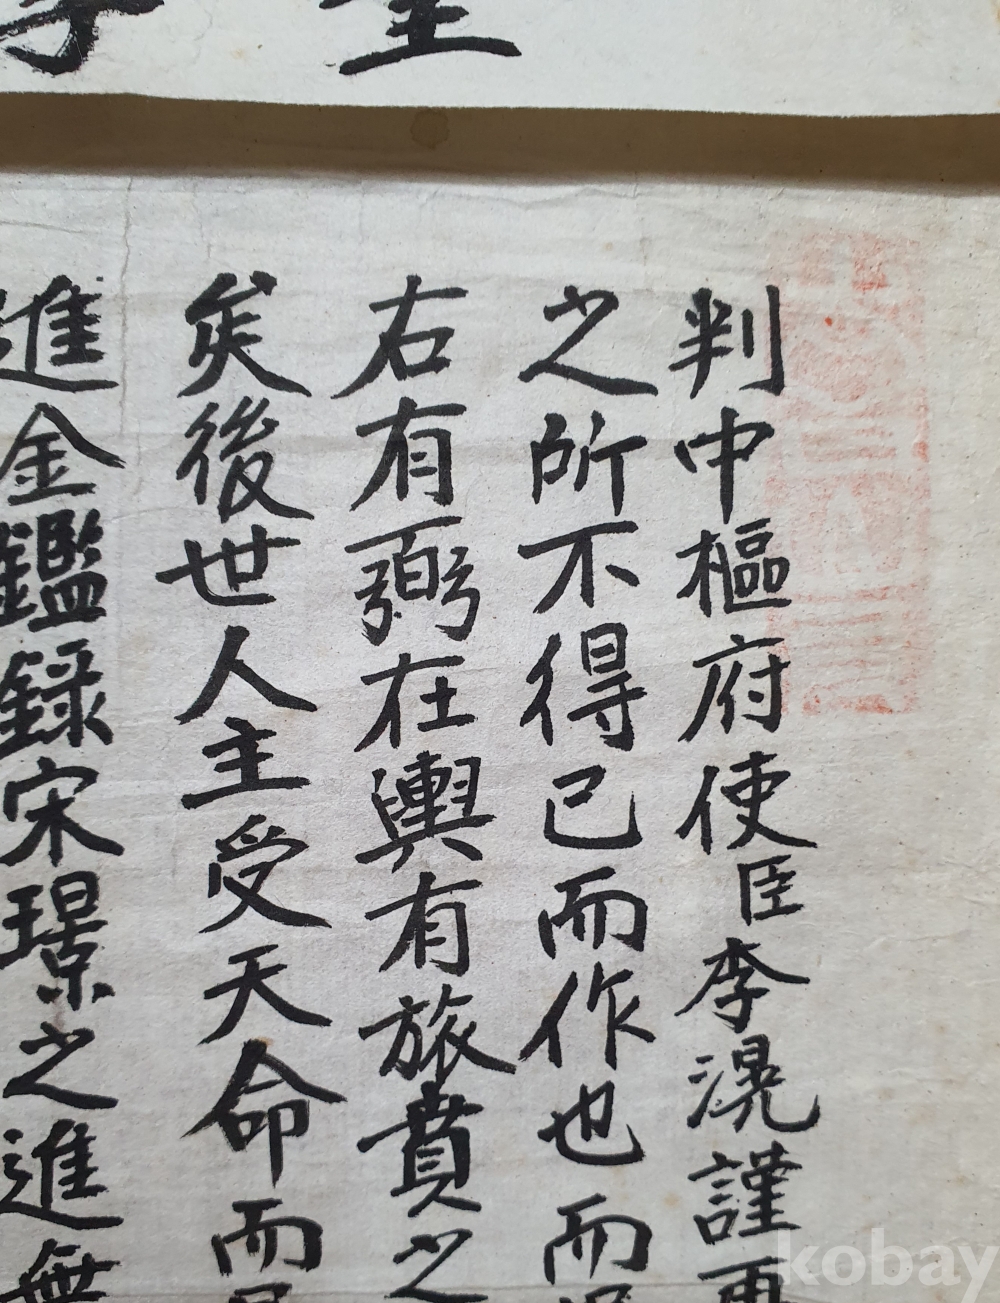 判中樞府使臣李滉謹再
之所不得已而作也而
右有弼在輿有旅賁之
矣後世人主受天命而
進金鑑錄宋璟之進無
kobay